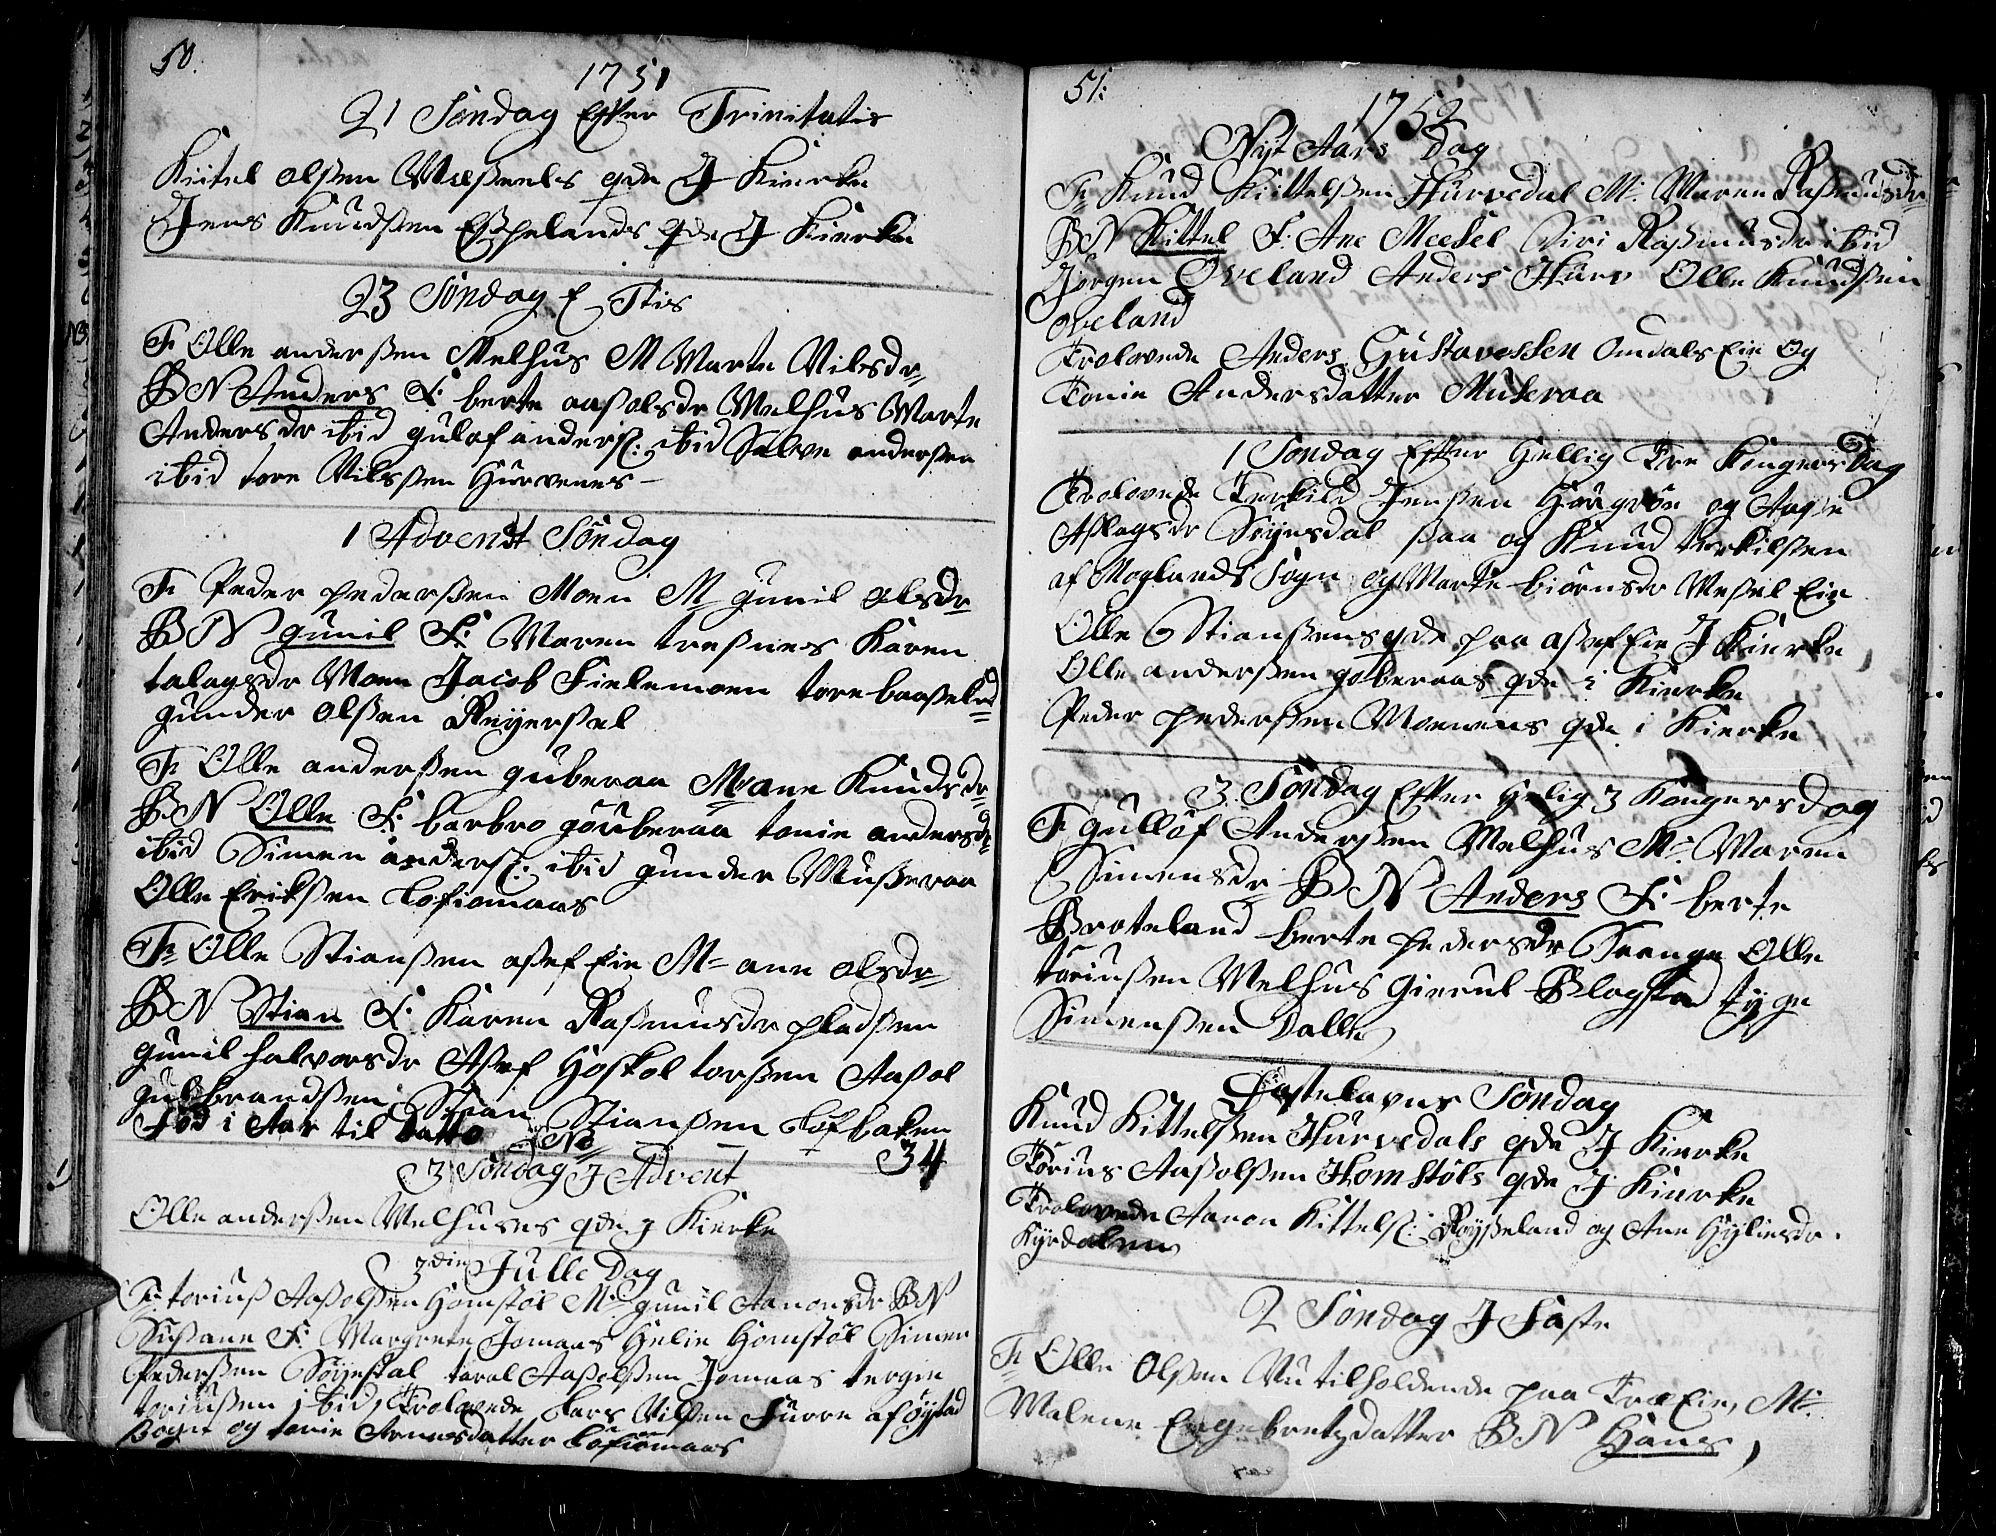 50.
1751
21 Søndag Efter Trinitatis
Kittel olsßen Mæsßels qde J Kierke
Jens Knudsßen Eshelands qde J Kierke
23 Søndag E Ttis
F: Olle andersßen Melhus M Marte Nilsdr
BN Anders F: berte aasßolsdr Melhus Marte
Andersdr ibid gulof anders: ibid Salve andersßen
ibid tore Nilsßen Hurvenes
1 Advendt Søndag
F: Peder pedersßen Moen M gunil olsdr
BN gunil F: Maren tresßnes Karen
talagsdr Moen Jacob Fielemoen tore
gunder olsßen Røyersßel
F: Olle andersßen guberaa M: ane Knudsdr
BN Olle F: barbro gouberaa tonie andersdr
ibid Simen anders: ibid gunder Musßeraa
Olle Eriksßen Lofiomaas
F: Olle Stiansßen asßef Eie M: ane olsdr
BN Stian F: Karen Rasßmusdr pladsßen
gunil halvorsdr Asßef Hoskol torsßen Aasßol
gulbrandsßen Stian Stiansßen Lofbaken
Fød i Aar til Datto No 34
3 Søndag J Advent
Olle andersßen Melhuses qde J Kierke
3die Julle Dag
F: toriusß Aasßolsßen Homstøl M: gunil Aanonsdr BN
Susßane F: Margrete Jomaas Helie Homstøl Simen
Pedersßen Søyestal taral Aasßolsßen Jomaas tergie
toriusßen ibid, Trolovede Lars Nilsßen Furre af øystad
sogn og tonie Arnesdatter Lofiomaas
51:
1752
Nyt Aars Dag
F: Knud Kittelsßen Hurvedal M: Maren Rasßmusdr
BN Kittel F: Ane Meesel Siri Rasßmusdr ibid
Jørgen Øveland Anders Hurv Olle Knudsßen
øveland
Trolovede Anders Gustavesßen Omdals Eie Og
Tonie Andersdatter Museraa
1 Søndag Efter Hellig Tre Kongers Dag
Trolovede Terkild Jensßen og Aasße
Aslagsdr Søyesdal saa og Knud terkilsßen
af Moglands Sogn og Marte biørnsdr Mesßel Eie
Olle Stiansßens qde paa asßef Eie J Kierke
Olle andersßen goberaas qde i Kierke
Peder pedersßen Moenens qde i Kierke
3 Søndag Efter Helig 3 Kongersdag
F: gulløf Andersßen Melhus M: Maren
Simensdr BN Anders F: berte
Broteland berte pedersdr Olle
toriusßen Melhus gierul Blagstad tyge
Simensßen Dalle
Fastelavns Søndag
Knud Kittelsßen Hurvedals qde J Kierke
Torius Aasßolsßen Homstøls qde J Kierke
Trolovede Aanon Kittels: Røysßeland og Ane Hyliesdr.
Kyrdalen
2 Søndag J Faste
F: Olle Olsßen Nu tilholdende paa Træ Eie, M:
Malene Engebretzdatter BN Hans,